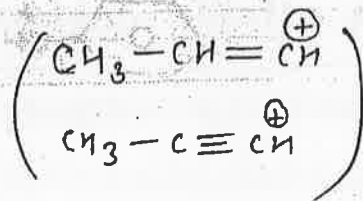 CH₃ – CH = CH⊕
CH₃ – C ≡ CH⊕